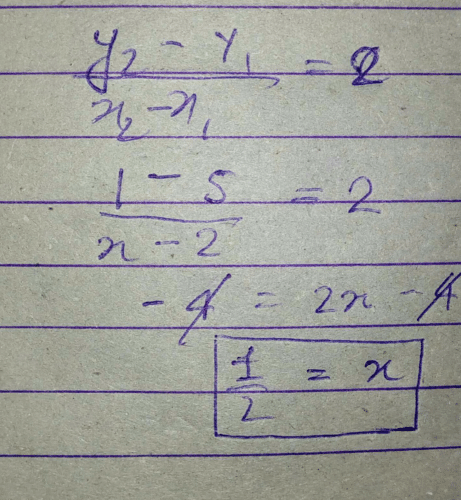 y₂ - y₁ / x₂ - x₁ = 2
1 - 5 / x - 2 = 2
- 4 = 2x - 4
1/2 = x